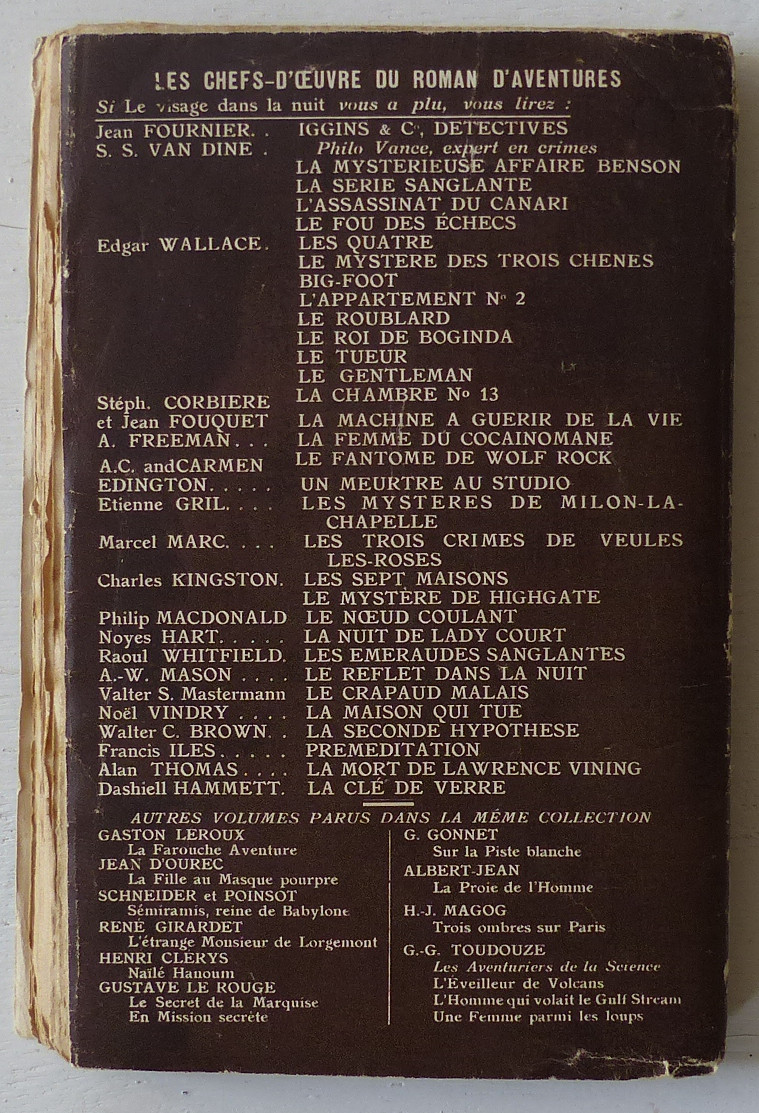 LES CHEFS-D'ŒUVRE DU ROMAN D'AVENTURES
Si Le visage dans la nuit vous a plu, vous lirez :
Jean FOURNIER. . IGGINS & Cº, DETECTIVES
S. S. VAN DINE . Philo Vance, expert en crimes
LA MYSTERIEUSE AFFAIRE BENSON
LA SERIE SANGLANTE
L'ASSASSINAT DU CANARI
LE FOU DES ÉCHECS
Edgar WALLACE. LES QUATRE
LE MYSTERE DES TROIS CHENES
BIG-FOOT
L'APPARTEMENT Nº 2
LE ROUBLARD
LE ROI DE BOGINDA
LE TUEUR
LE GENTLEMAN
LA CHAMBRE Nº 13
Stéph. CORBIERE
et Jean FOUQUET LA MACHINE A GUERIR DE LA VIE
A. FREEMAN. . . LA FEMME DU COCAINOMANE
LE FANTOME DE WOLF ROCK
A.C. and CARMEN
EDINGTON. . . . . UN MEURTRE AU STUDIO
Etienne GRIL. . . . LES MYSTERES DE MILON-LA-
CHAPELLE
Marcel MARC. . . . LES TROIS CRIMES DE VEULES
LES-ROSES
Charles KINGSTON. LES SEPT MAISONS
LE MYSTÈRE DE HIGHGATE
Philip MACDONALD LE NŒUD COULANT
Noyes HART. . . . . LA NUIT DE LADY COURT
Raoul WHITFIELD. LES EMERAUDES SANGLANTES
A.-W. MASON . . . . LE REFLET DANS LA NUIT
Valter S. Mastermann LE CRAPAUD MALAIS
Noël VINDRY . . . . LA MAISON QUI TUE
Walter C. BROWN. . LA SECONDE HYPOTHESE
Francis ILES. . . . . PREMEDITATION
Alan THOMAS. . . . LA MORT DE LAWRENCE VINING
Dashiell HAMMETT. LA CLÉ DE VERRE
AUTRES VOLUMES PARUS DANS LA MÉME COLLECTION
GASTON LEROUX
La Farouche Aventure
JEAN D'OUREC
La Fille au Masque pourpre
SCHNEIDER et POINSOT
Sémiramis, reine de Babylone
RENÉ GIRARDET
L'étrange Monsieur de Lorgemont
HENRI CLÉRYS
Naïlé Hanoum
GUSTAVE LE ROUGE
Le Secret de la Marquise
En Mission secrète
G. GONNET
Sur la Piste blanche
ALBERT-JEAN
La Proie de l'Homme
H.-J. MAGOG
Trois ombres sur Paris
G.-G. TOUDOUZE
Les Aventuriers de la Science
L'Éveilleur de Volcans
L'Homme qui volait le Gulf Stream
Une Femme parmi les loups